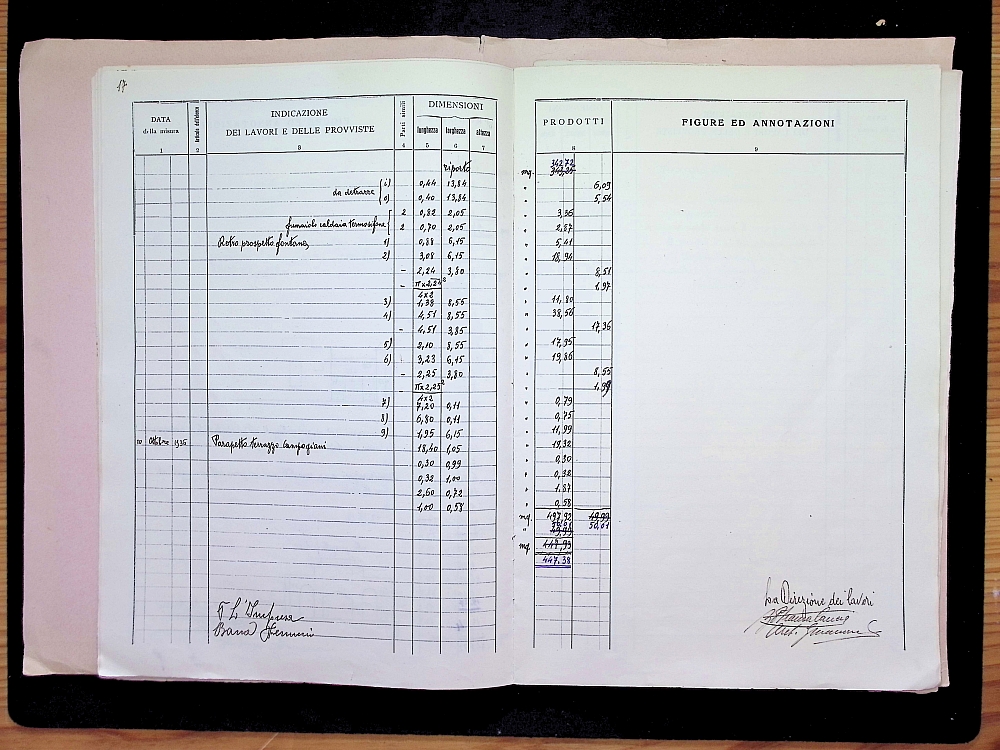 17
DATA della misura
INDICAZIONE DEI LAVORI E DELLE PROVVISTE
Parti simili
DIMENSIONI
lunghezza larghezza altezza
PRODOTTI
FIGURE ED ANNOTAZIONI
1 2 3 4 5 6 7 8 9
riporto mq. 342,72
da detrarre i) 0,44 13,84 " 6,09
o) 0,40 13,84 " 5,54
2 0,82 2,05 " 3,36
funaiolo caldaia termosifone 2 0,70 2,05 " 2,87
Retro prospetto fontana 1) 0,88 6,15 " 5,41
2) 3,08 6,15 " 18,94
- 2,24 3,80 " 8,51
- π x 2,24² " 1,97
4x2
3) 1,38 8,55 " 11,80
4) 4,51 8,55 " 38,56
- 4,51 3,85 " 17,36
5) 2,10 8,55 " 17,95
6) 3,23 6,15 " 19,86
- 2,25 3,80 " 8,55
- π x 2,25² " 1,99
4x2
7) 7,20 0,11 " 0,79
8) 6,80 0,11 " 0,75
9) 1,95 6,15 " 11,99
10 Ottobre 1936 Parapetto terrazzo Campogiani 18,40 1,05 " 19,32
0,30 0,99 " 0,30
0,32 1,00 " 0,32
2,60 0,72 " 1,87
1,00 0,58 " 0,58
mq. 497,92 49,99
50,01 50,01
" 49,99
mq. 447,93
447.38
L'Impresa
La Direzione dei lavori